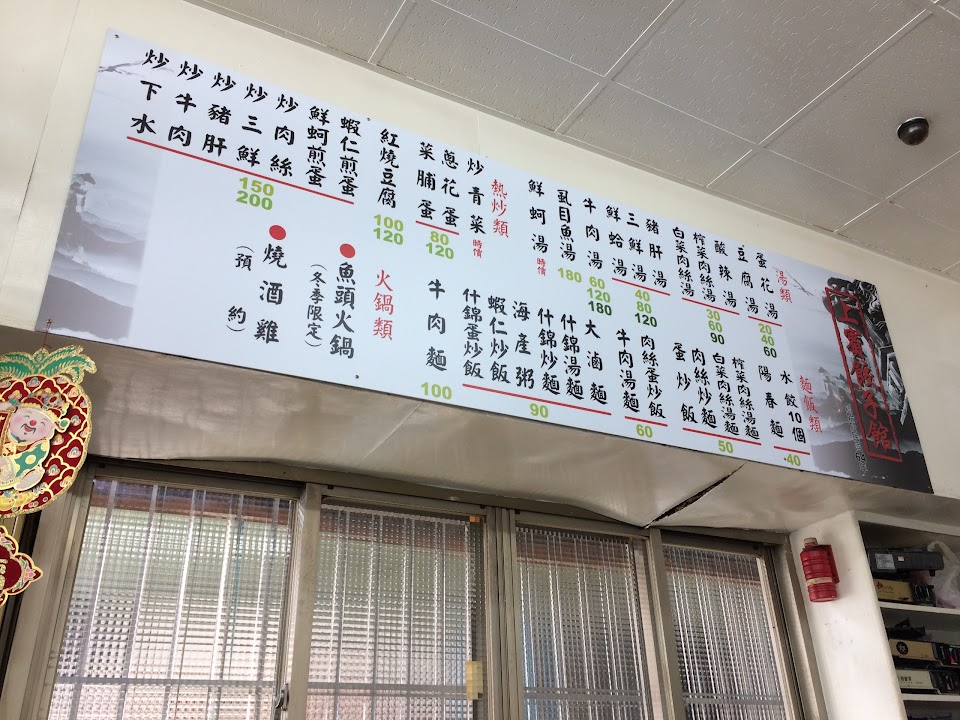 上賓餃子館
湯類
蛋花湯
豆腐湯
20
40
60
酸辣湯
榨菜肉絲湯
白菜肉絲湯
30
60
90
豬肝湯
三鮮湯
鮮蛤湯
40
80
120
牛肉湯
60
120
180
虱目魚湯
180
鮮蚵湯
時價
熱炒類
炒青菜
時價
蔥花蛋
菜脯蛋
80
120
紅燒豆腐
100
120
蝦仁煎蛋
鮮蚵煎蛋
炒肉絲
炒三鮮
炒豬肝
炒牛肉
炒下水
150
200
麵飯類
水餃10個
陽春麵
40
榨菜肉絲湯麵
白菜肉絲湯麵
肉絲炒麵
蛋炒飯
50
肉絲蛋炒飯
牛肉湯麵
60
大滷麵
什錦湯麵
什錦炒麵
海產粥
蝦仁炒飯
什錦蛋炒飯
90
牛肉麵
100
火鍋類
●魚頭火鍋
(冬季限定)
●燒酒雞
(預約)